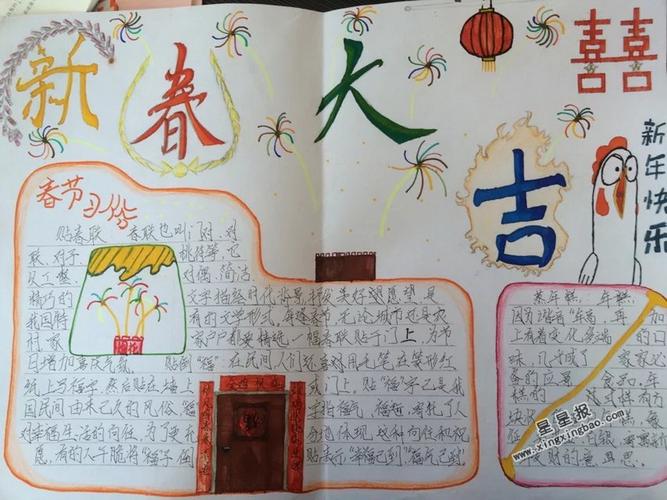 新春大吉
囍
新年快乐
春节习俗
贴春联 春联也叫门对、对
联、对子、桃符等，它
以工整、对偶、简洁、
精巧的文字描绘时代背景，抒发美好愿望，是
我国特有的文学形式。每逢春节，无论城市还是农
村，家家户户都要精选一幅春联贴于门上，为节
日增加喜庆气氛。 贴倒“福” 在民间人们还喜欢用毛笔在菱形红
纸上写福字，然后贴在墙上或门上。贴“福”字已是我
国民间由来已久的风俗。“福”字指福气、福运，寄托了人
对幸福生活的向往，
愿，有的人干脆将“福”字倒贴表示“幸福已到”“福气已到”。
蒸年糕 年糕
因为谐音“年高”，再加
上有着变化多端的口
味，几乎成了家家必
备的应景食品。年
糕的式样有方
块
财的意思。
星星报
www.xingxingbao.com